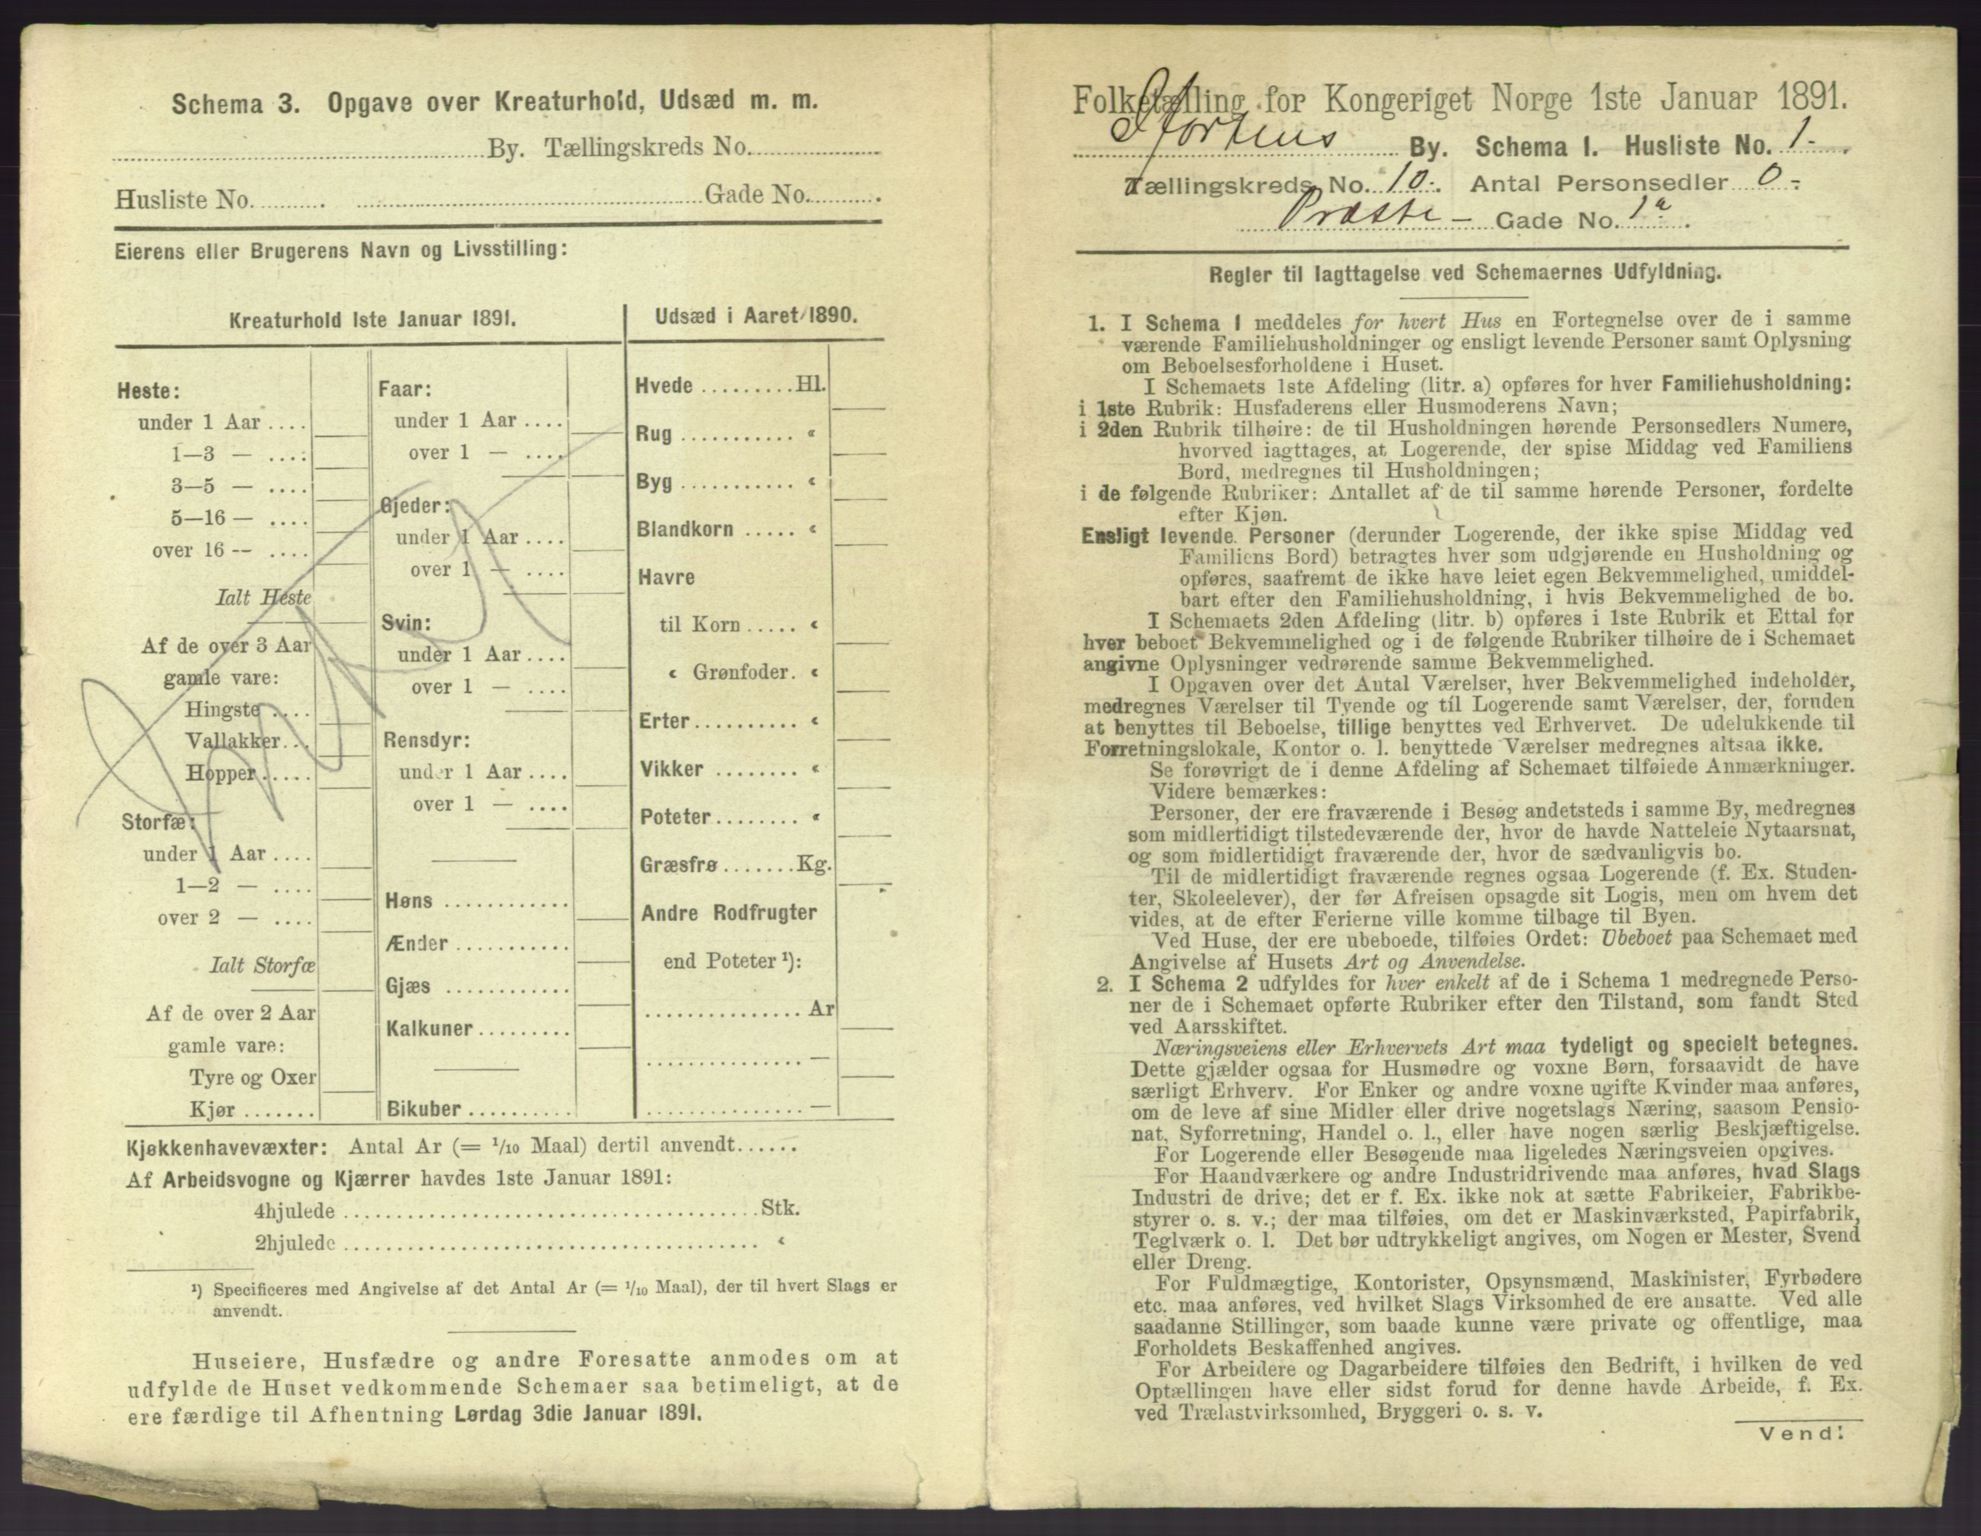 Schema 3. Opgave over Kreaturhold, Udsæd m. m.
By. Tællingskreds No.
Husliste No. Gade No.
Eierens eller Brugerens Navn og Livsstilling:
Kreaturhold 1ste Januar 1891.
Heste:
under 1 Aar ....
1—3 — ....
3—5 — ....
5—16 — ....
over 16 -- ....
Ialt Heste
Af de over 3 Aar
gamle vare:
Hingste ....
Vallakker...
Hopper.....
Storfæ:
under 1 Aar ....
1—2 — ....
over 2 — ....
Ialt Storfæ
Af de over 2 Aar
gamle vare:
Tyre og Oxer
Kjør .......
Faar:
under 1 Aar ....
over 1 — ....
Gjeder:
under 1 Aar ....
over 1 — ....
Svin:
under 1 Aar ....
over 1 — ....
Rensdyr:
under 1 Aar ....
over 1 — ....
Høns ............
Ænder ...........
Gjæs ............
Kalkuner.........
Bikuber ..........
Udsæd i Aaret 1890.
Hvede .........Hl.
Rug ........... “
Byg ........... “
Blandkorn ..... “
Havre
til Korn ..... “
“ Grønfoder. “
Erter .......... “
Vikker ........ “
Poteter........ “
Græsfrø .......Kg.
Andre Rodfrugter
end Poteter ¹):
............... Ar
............... —
............... —
Kjøkkenhavevæxter: Antal Ar (= 1/10 Maal) dertil anvendt......
Af Arbeidsvogne og Kjærrer havdes 1ste Januar 1891:
4hjulede ........................................Stk.
2hjulede ........................................ “
¹) Specificeres med Angivelse af det Antal Ar (= 1/10 Maal), der til hvert Slags er
anvendt.
Huseiere, Husfædre og andre Foresatte anmodes om at
udfylde de Huset vedkommende Schemaer saa betimeligt, at de
ere færdige til Afhentning Lørdag 3die Januar 1891.
Folketælling for Kongeriget Norge 1ste Januar 1891.
Hortens By. Schema I. Husliste No. 1.
Tællingskreds No. 10. Antal Personsedler 0-
Præste- Gade No. 1a.
Regler til Iagttagelse ved Schemaernes Udfyldning.
1. I Schema 1 meddeles for hvert Hus en Fortegnelse over de i samme
værende Familiehusholdninger og ensligt levende Personer samt Oplysning
om Beboelsesforholdene i Huset.
I Schemaets 1ste Afdeling (litr. a) opføres for hver Familiehusholdning:
i 1ste Rubrik: Husfaderens eller Husmoderens Navn;
i 2den Rubrik tilhøire: de til Husholdningen hørende Personsedlers Numere,
hvorved iagttages, at Logerende, der spise Middag ved Familiens
Bord, medregnes til Husholdningen;
i de følgende Rubriker: Antallet af de til samme hørende Personer, fordelte
efter Kjøn.
Ensligt levende Personer (derunder Logerende, der ikke spise Middag ved
Familiens Bord) betragtes hver som udgjørende en Husholdning og
opføres, saafremt de ikke have leiet egen Bekvemmelighed, umiddel-
bart efter den Familiehusholdning, i hvis Bekvemmelighed de bo.
I Schemaets 2den Afdeling (litr. b) opføres i 1ste Rubrik et Ettal for
hver beboet Bekvemmelighed og i de følgende Rubriker tilhøire de i Schemaet
angivne Oplysninger vedrørende samme Bekvemmelighed.
I Opgaven over det Antal Værelser, hver Bekvemmelighed indeholder,
medregnes Værelser til Tyende og til Logerende samt Værelser, der, foruden
at benyttes til Beboelse, tillige benyttes ved Erhvervet. De udelukkende til
Forretningslokale, Kontor o. l. benyttede Værelser medregnes altsaa ikke.
Se forøvrigt de i denne Afdeling af Schemaet tilføiede Anmærkninger.
Videre bemærkes:
Personer, der ere fraværende i Besøg andetsteds i samme By, medregnes
som midlertidigt tilstedeværende der, hvor de havde Natteleie Nytaarsnat,
og som midlertidigt fraværende der, hvor de sædvanligvis bo.
Til de midlertidigt fraværende regnes ogsaa Logerende (f. Ex. Studen-
ter, Skoleelever), der før Afreisen opsagde sit Logis, men om hvem det
vides, at de efter Ferierne ville komme tilbage til Byen.
Ved Huse, der ere ubeboede, tilføies Ordet: Ubeboet paa Schemaet med
Angivelse af Husets Art og Anvendelse.
2. I Schema 2 udfyldes for hver enkelt af de i Schema 1 medregnede Perso-
ner de i Schemaet opførte Rubriker efter den Tilstand, som fandt Sted
ved Aarsskiftet.
Næringsveiens eller Erhvervets Art maa tydeligt og specielt betegnes.
Dette gjælder ogsaa for Husmødre og voxne Børn, forsaavidt de have
særligt Erhverv. For Enker og andre voxne ugifte Kvinder maa anføres,
om de leve af sine Midler eller drive nogetslags Næring, saasom Pensio-
nat, Syforretning, Handel o. l., eller have nogen særlig Beskjæftigelse.
For Logerende eller Besøgende maa ligeledes Næringsveien opgives.
For Haandværkere og andre Industridrivende maa anføres, hvad Slags
Industri de drive; det er f. Ex. ikke nok at sætte Fabrikeier, Fabrikbe-
styrer o. s. v.; der maa tilføies, om det er Maskinværksted, Papirfabrik,
Teglværk o. l. Det bør udtrykkeligt angives, om Nogen er Mester, Svend
eller Dreng.
For Fuldmægtige, Kontorister, Opsynsmænd, Maskinister, Fyrbødere
etc. maa anføres, ved hvilket Slags Virksomhed de ere ansatte. Ved alle
saadanne Stillinger, som baade kunne være private og offentlige, maa
Forholdets Beskaffenhed angives.
For Arbeidere og Dagarbeidere tilføies den Bedrift, i hvilken de ved
Optællingen have eller sidst forud for denne havde Arbeide, f. Ex.
ved Trælastvirksomhed, Bryggeri o. s. v.
Vend!